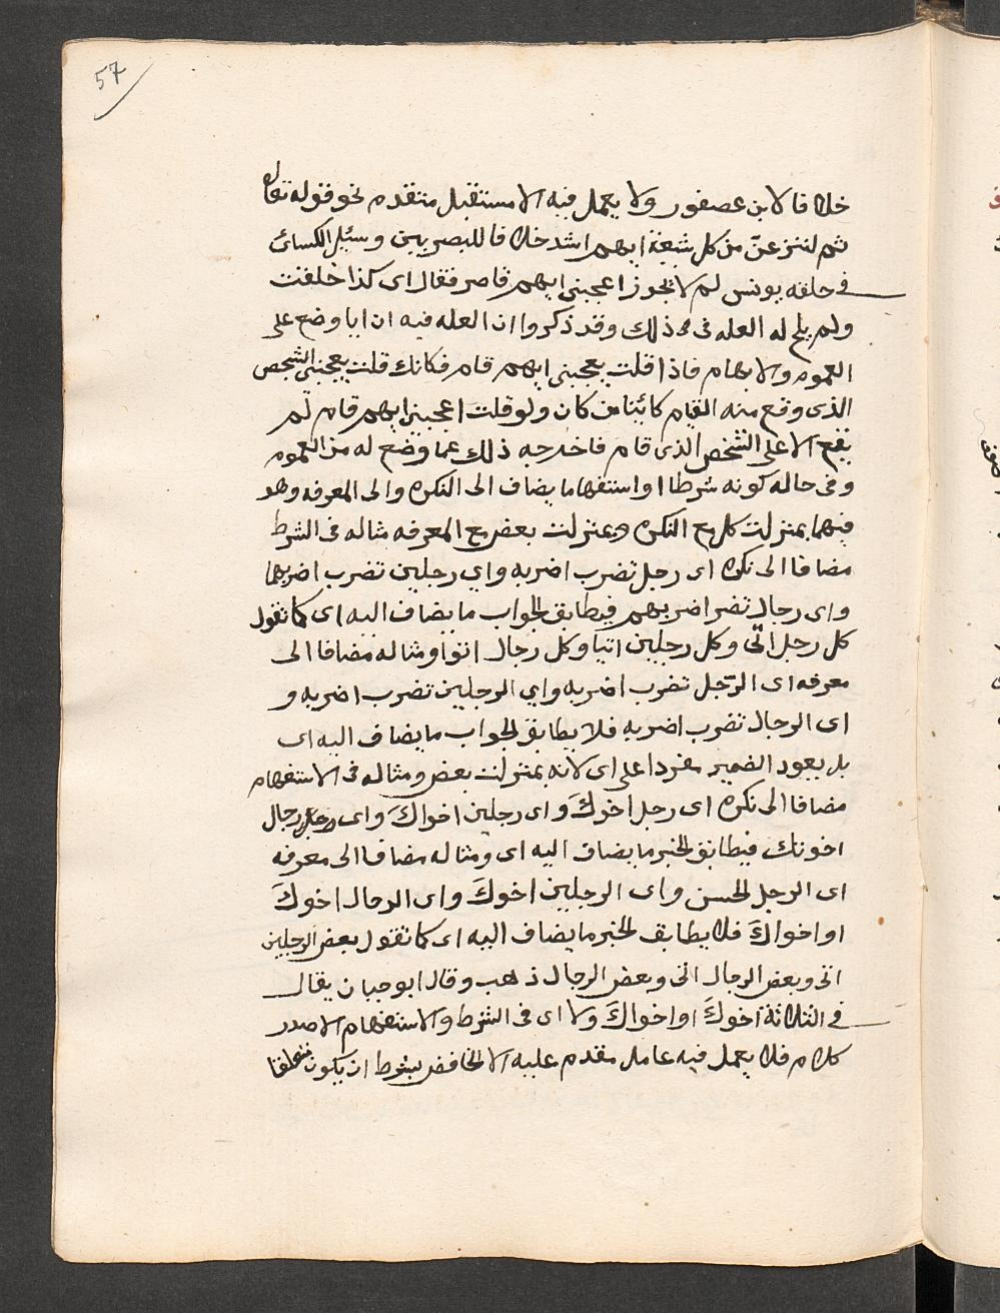 57
خلافا لابن عصفور ولا يعمل فيه الا مستقبل متقدم نحو قوله تعالى
ثم لننزعن من كل شيعة ايهم اشد خلافا للبصريين وسئل الكسائى
فى حلقه يونس لم لا يجوز اعجبنى ايهم قام فقال اى كذا خلقت
ولم يلح له العله فى ذلك وقد ذكروا ان العله فيه ان ايا وضع على
العموم والابهام فاذا قلت يعجبنى ايهم قام فكانك قلت يعجبنى الشخص
الذى وقع منه القيام كائنا من كان ولو قلت اعجبنى ايهم قام لم
يقع الا على الشخص الذى قام فاخرجه ذلك عما وضع له من العموم
وفى حاله كونه شرطا او استفهاما يضاف الى النكره والى المعرفه وهو
فيهما بمنزلت كل مع النكره وبمنزلت بعض مع المعرفه مثاله فى الشرط
مضافا الى نكره اى رجل تضرب اضربه واي رجلين تضرب اضربهما
واى رجال تضر اضربهم فيطابق الجواب ما يضاف اليه اى كما تقول
كل رجل اتى وكل رجلين اتيا وكل رجال اتوا ومثاله مضافا الى
معرفه اى الرجل تضرب اضربه واي الرجلين تضرب اضربه و
اى الرجال تضرب اضربه فلا يطابق الجواب ما يضاف اليه اى
بل يعود الضمير مفردا على اى لانه بمنزلت بعض ومثاله فى الاستفهام
مضافا الى نكره اى رجل اخوكَ واى رجلين اخواكَ واى رجل رجال
اخوتك فيطابق الخبر ما يضاف اليه اى ومثاله مضافا الى معرفه
اى الرجل الحسن واى الرجلين اخوكَ واى الرجال اخوكَ
او اخواكَ فلا يطابق الخبر ما يضاف اليه اى كما تقول بعض الرجلين
اتى وبعض الرجال اتى وبعض الرجال ذهب وقال ابو حيان يقال
فى الثلاثة اخوكَ او اخواكَ ولا اى فى الشرط والاستفهام الا صدر
كلام فلا يعمل فيه عامل مقدم عليه الا الخافض بشرط ان يكون متعلقا